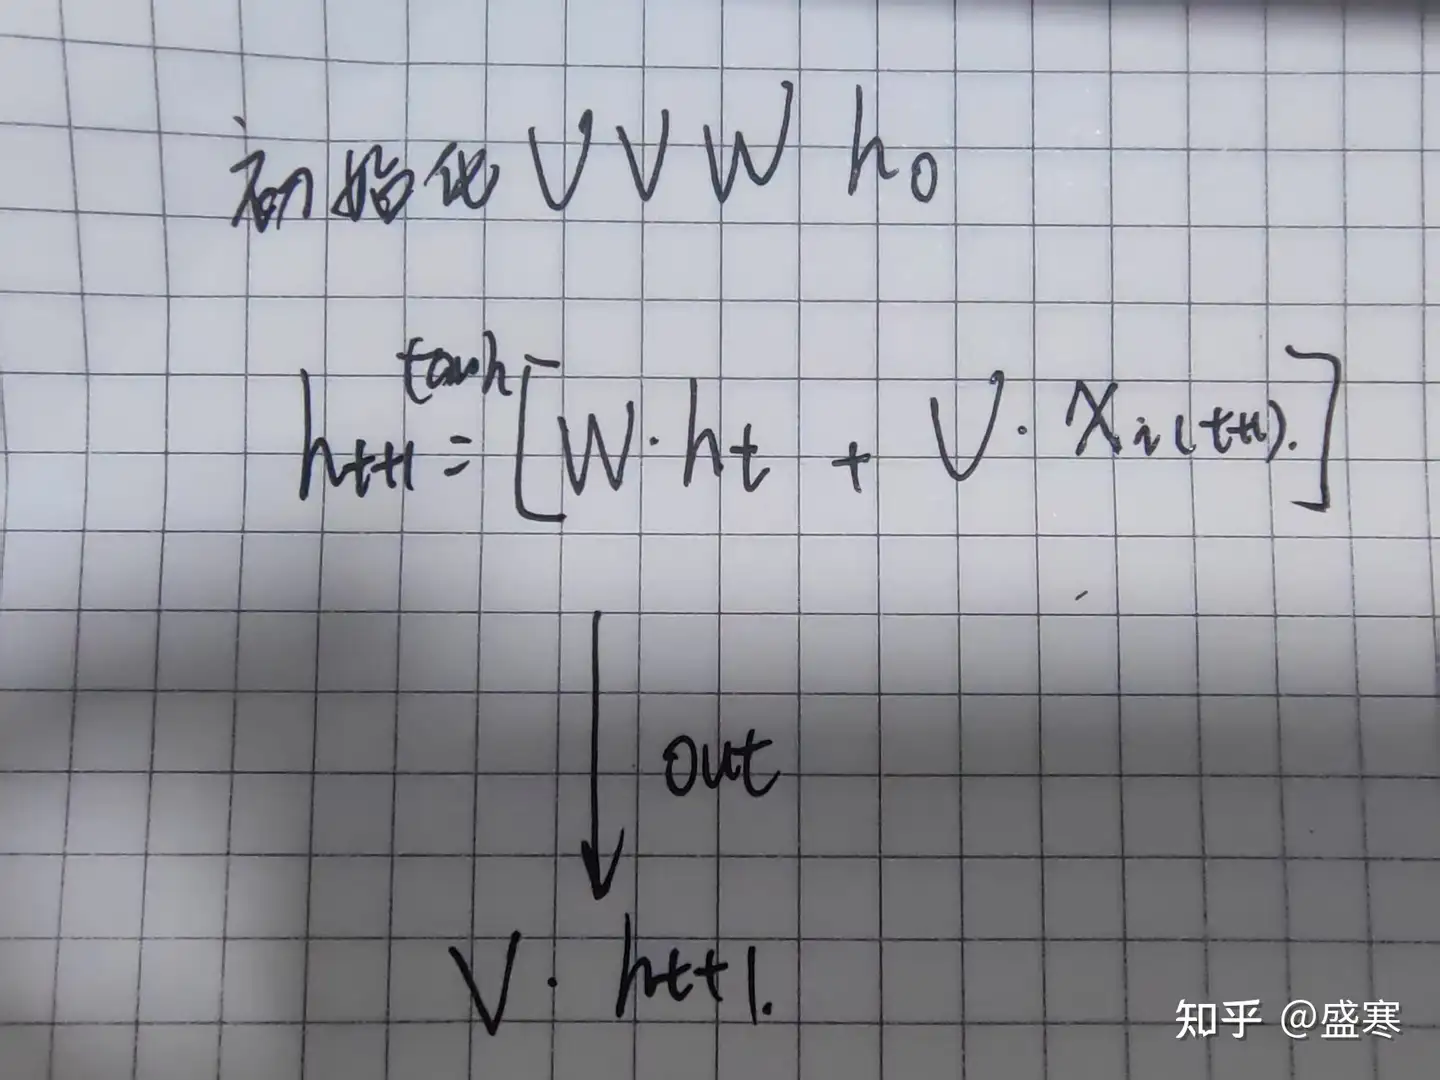 初始化 U V W h₀
hₜ₊₁ = tanh [W·hₜ + U·xᵢ₍ₜ₊₁₎.]
out
V·hₜ₊₁.
知乎 @盛寒